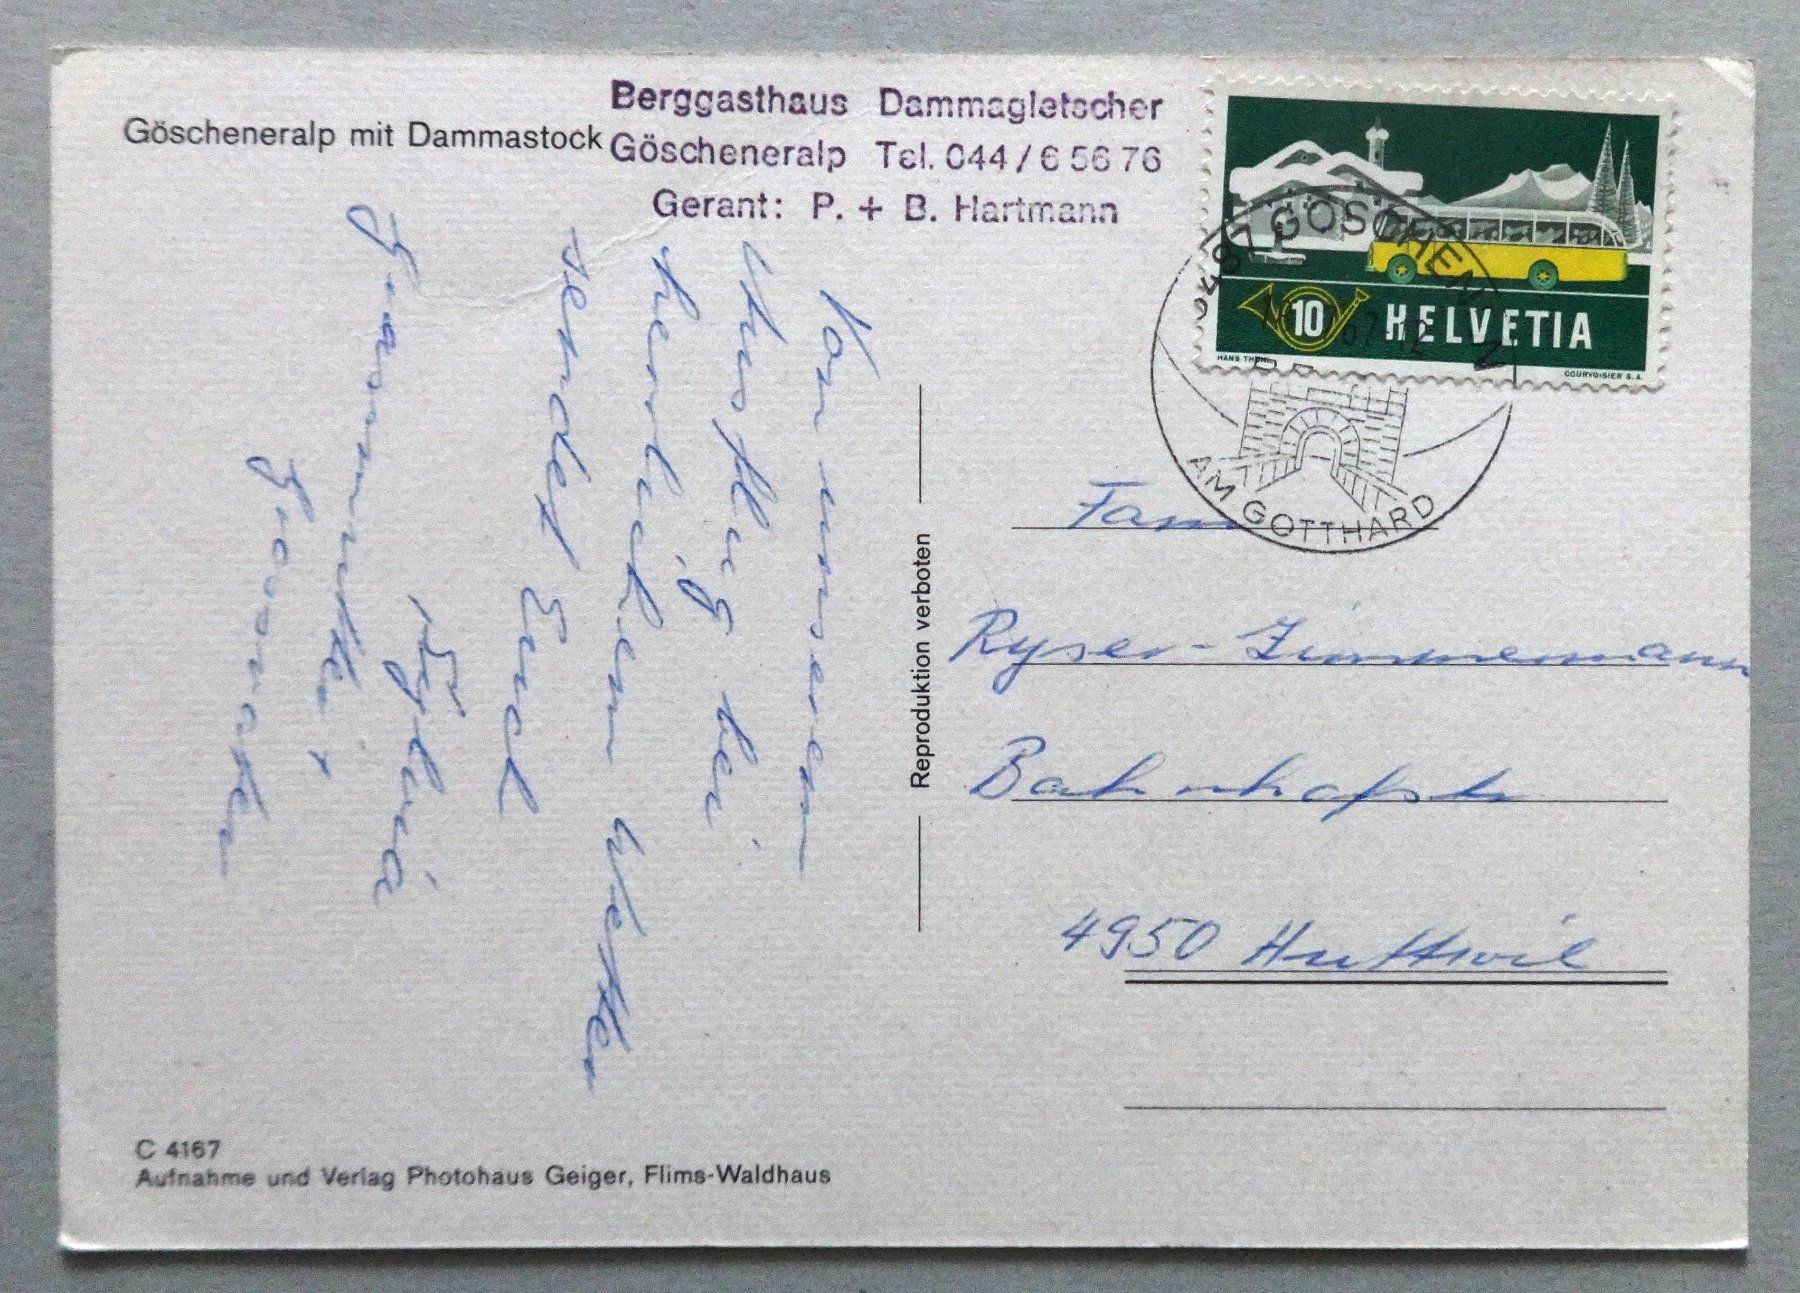 Göscheneralp mit Dammastock
Berggasthaus Dammagletscher
Göscheneralp Tel. 044/6 56 76
Gerant: P. + B. Hartmann
10 HELVETIA
HANS THÖNI
COURVOISIER S.A.
6487 GÖSCHENEN
AM GOTTHARD
Von unserem
Ausflug bei
herrlichem Wetter
sendet Euch
Sylvia
Grossmutti +
Grossvater
Reproduktion verboten
Fam
Ryser-Zimmermann
Bahnhofstr
4950 Huttwil
C 4167
Aufnahme und Verlag Photohaus Geiger, Flims-Waldhaus